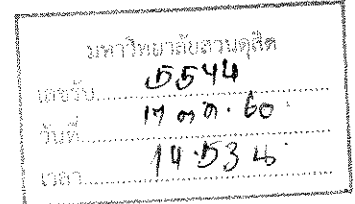 มหาวิทยาลัยสวนดุสิต
เลขรับ 5544
วันที่ 17 ตค. 60
เวลา 14.53 น.